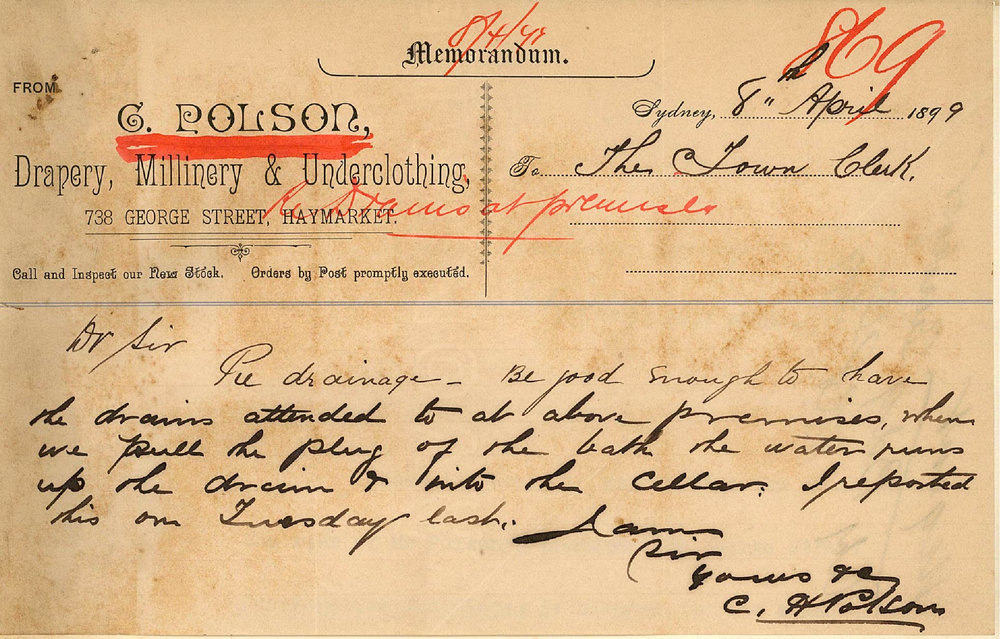 8/4/99
869
Memorandum.
FROM
C. POLSON,
Drapery, Millinery & Underclothing,
738 GEORGE STREET, HAYMARKET.
Call and Inspect our New Stock. Orders by Post promptly executed.
Sydney, 8th April 1899
To The Town Clerk.
Re Drains at premises
Dr Sir
Re drainage - Be good enough to have
the drains attended to at above premises, when
we pull the plug of the bath the water runs
up the drain & into the cellar. I reported
this on Tuesday last.
I am
Sir
Yours &c
C. H Polson